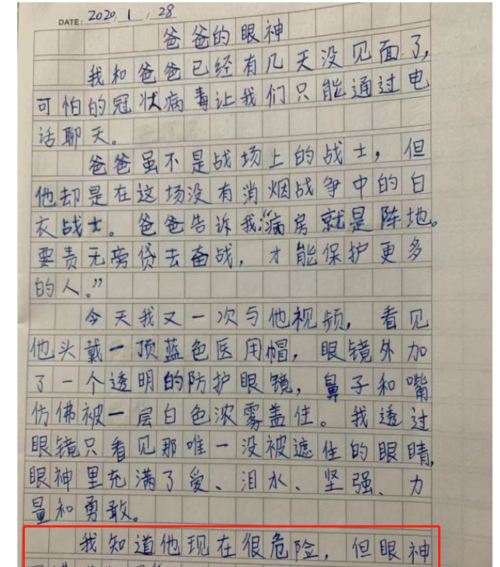 DATE: 2020.1.28
爸爸的眼神
我和爸爸已经有几天没见面了,
可怕的冠状病毒让我们只能通过电
话聊天。
爸爸虽不是战场上的战士,但
他却是在这场没有消烟战争中的白
衣战士。爸爸告诉我:“病房就是阵地。
要责无旁贷去奋战,才能保护更多
的人。”
今天我又一次与他视频,看见
他头戴一顶蓝色医用帽,眼镜外加
了一个透明的防护眼镜,鼻子和嘴
仿佛被一层白色浓雾盖住。我透过
眼镜只看见那唯一没被遮住的眼睛,
眼神里充满了爱、泪水、坚强、力
量和勇敢。
我知道他现在很危险,但眼神